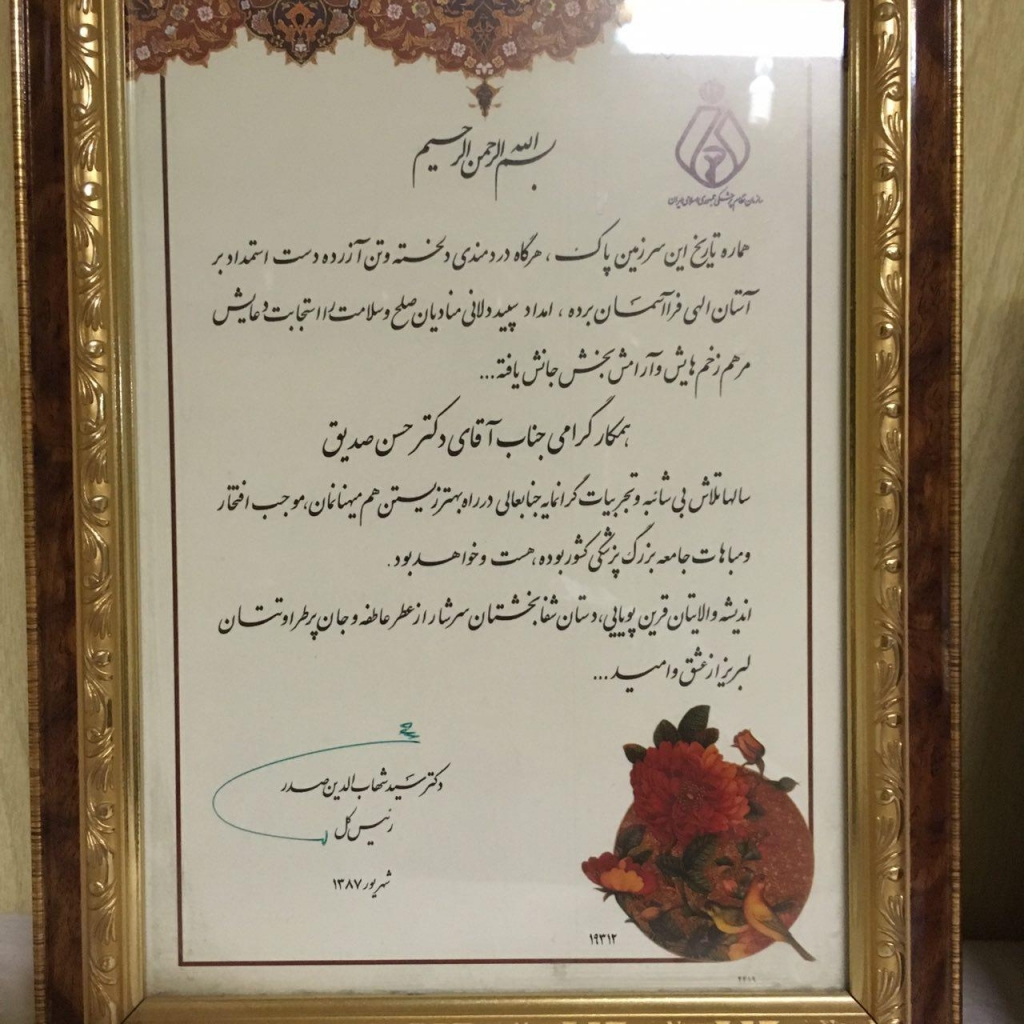 بسم الله الرحمن الرحیم
سازمان نظام پزشکی جمهوری اسلامی ایران
هماره تاریخ این سرزمین پاک ، هرگاه دردمندی دلخسته و تن آزرده دست استمداد بر
آستان الهی فرا آسمان برده ، امداد سپید دلانی منادیان صلح و سلامت را استجابت دعایش
مرهم زخم هایش و آرامش بخش جانش یافته...
همکار گرامی جناب آقای دکتر حسن صدیق
سالها تلاش بی شائبه و تجربیات گرانمایه جنابعالی در راه بهتر زیستن هم میهنانمان، موجب افتخار
و مباهات جامعه بزرگ پزشکی کشور بوده ،هست و خواهد بود .
اندیشه والایتان قرین پویایی، دستان شفابخشتان سرشار از عطر عاطفه و جان پر طراوتتان
لبریز از عشق و امید ...
دکتر سید شهاب الدین صدر
رئیس کل
شهریور ۱۳۸۷
۱۹۳۱۲